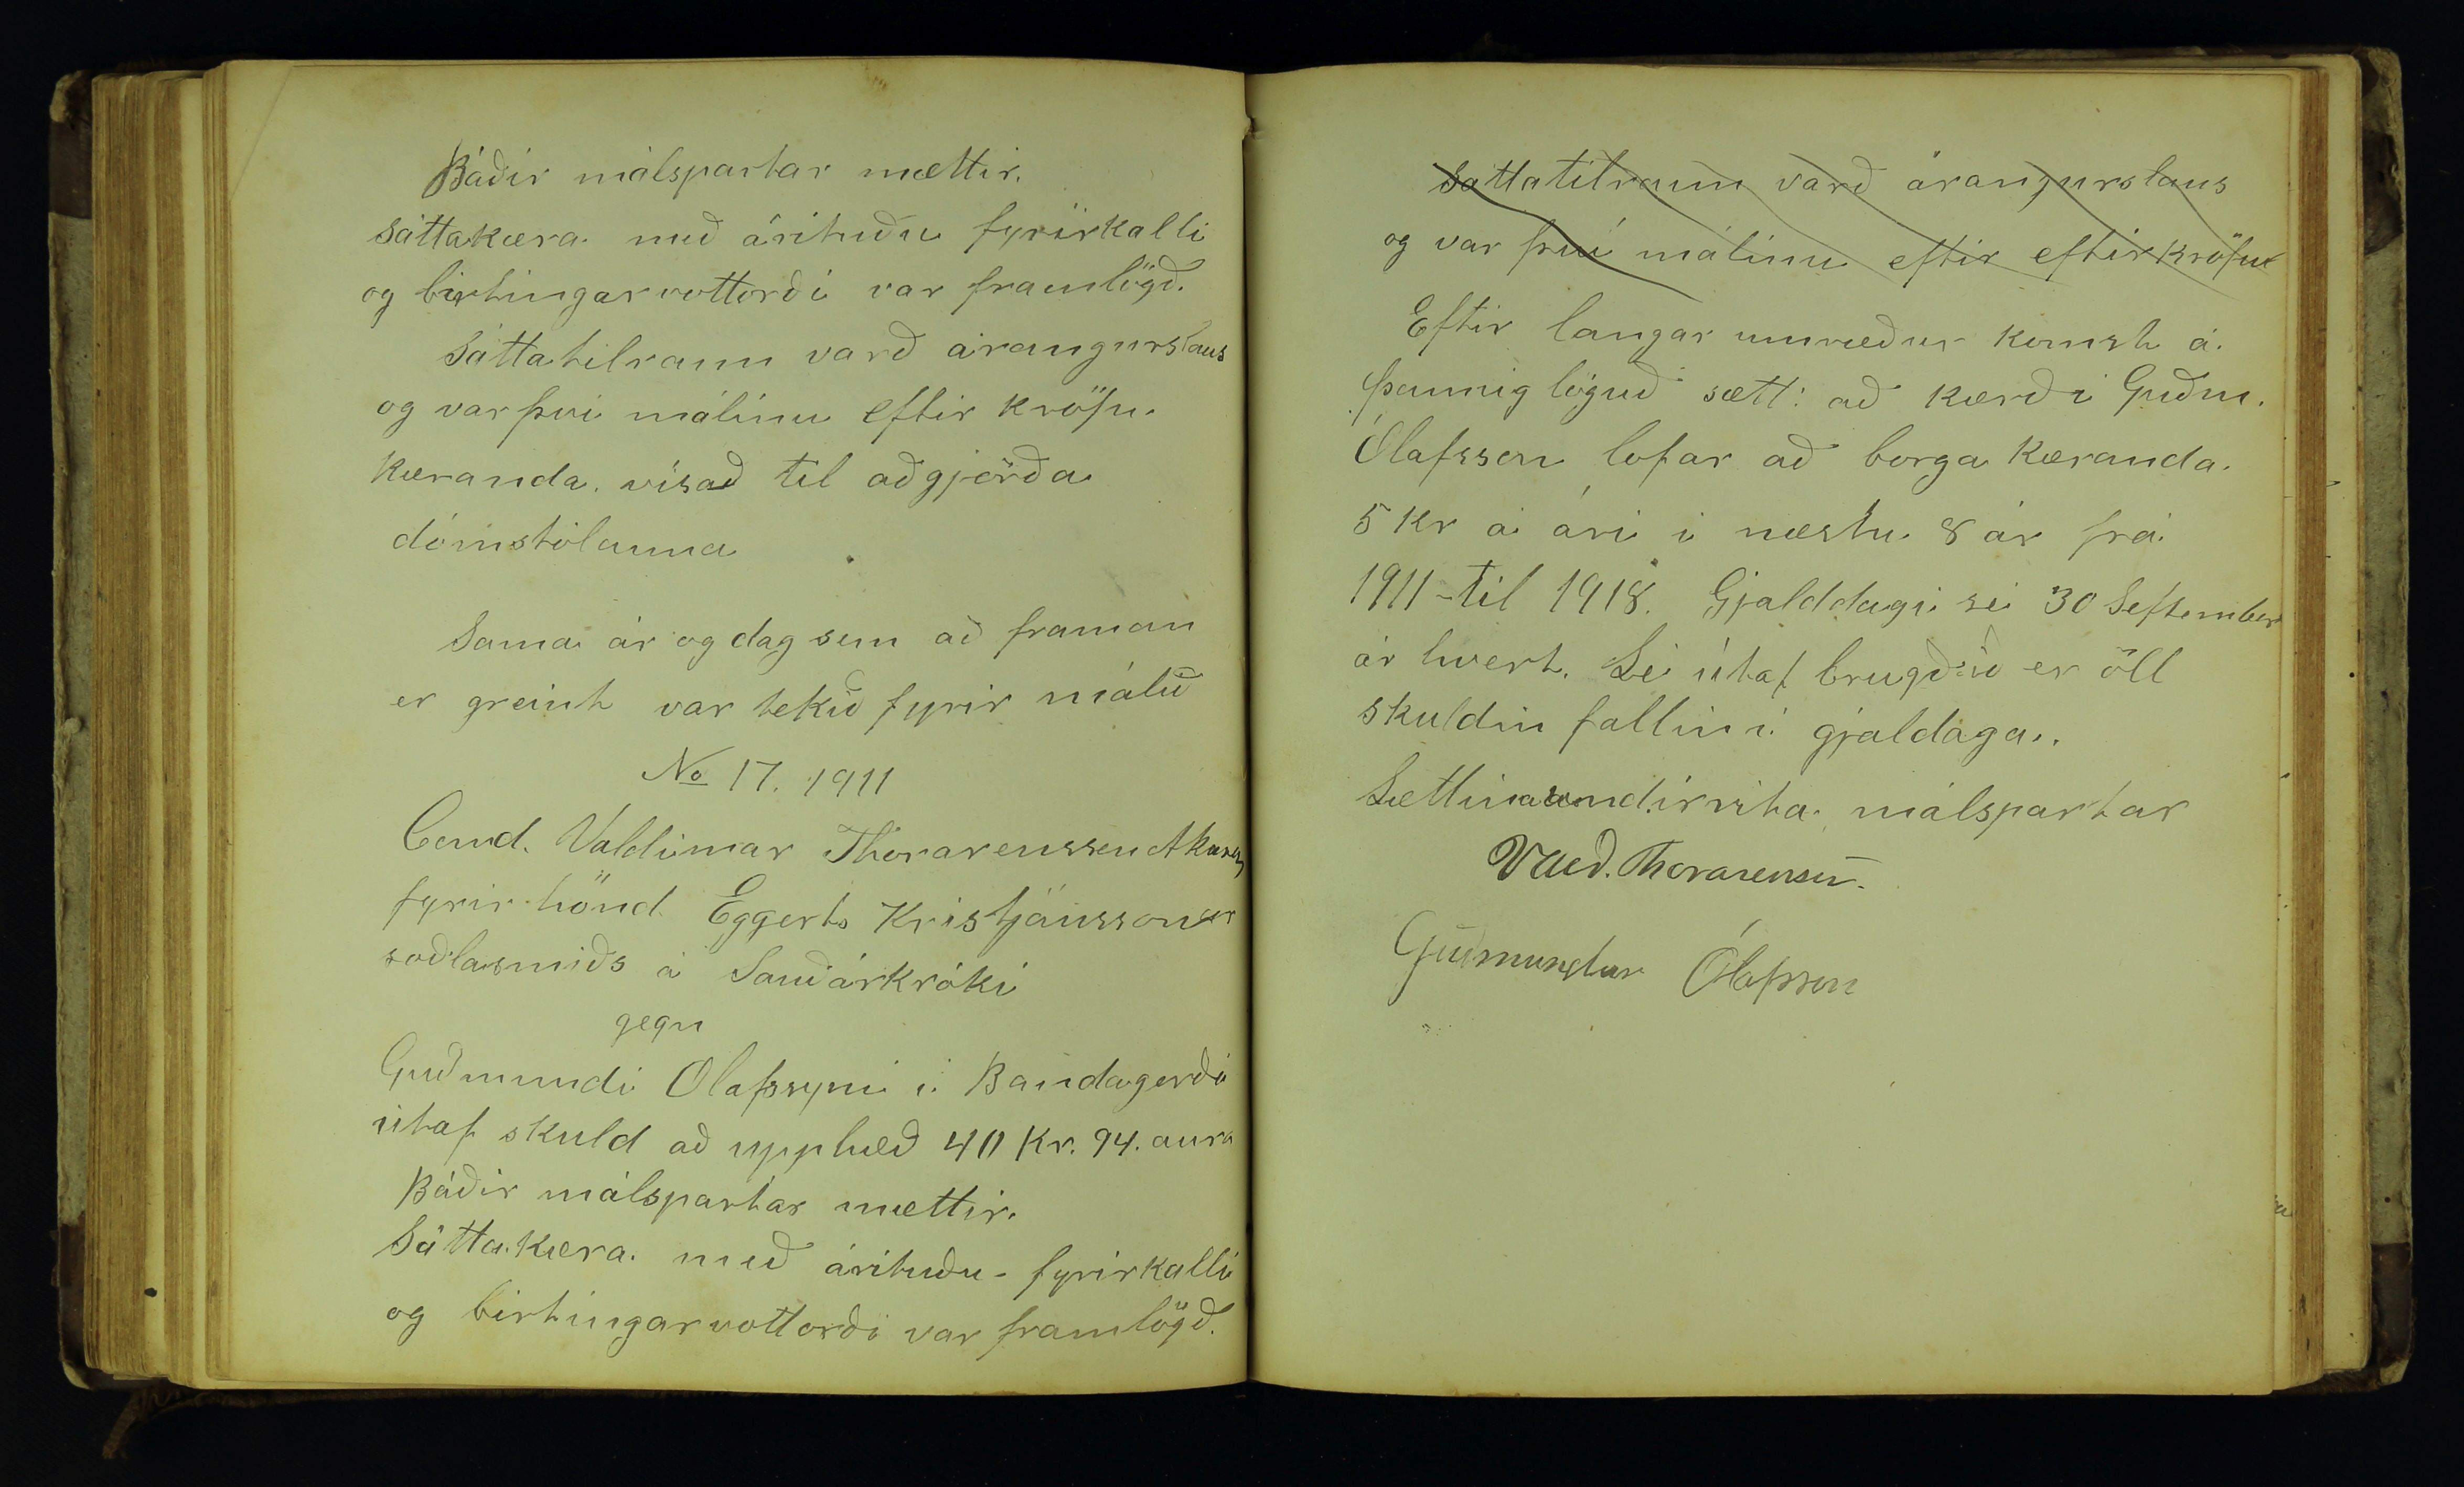 Báðir málspartar mættir.
Sáttakæra með árituðu fyrirkalli
og birtingarvottorði var framlögð.
Sáttatilraun varð árangurslaus
og var því málinu eftir kröfu
kæranda vísað til aðgjörða
dómstólanna
Sama ár og dag sem að framan
er greint var tekið fyrir málið
No 17. 1911
Cand. Valdimar Thorarenssen Akurey
fyrir hönd Eggerts Kristjánssonar
soðlasmiðs á Sauðárkróki
gegn
Guðmundi Olafssyni í Bandagerði
útaf skuld að upphæð 40 Kr. 94. aura
Báðir málspartar mættir.
Sáttakæra með árituðu fyrirkalli
og birtingarvottorði var framlögð.
Sattatilraun varð árangurslaus
og var því málinu eftir eftirkröfu
Eftir langar umræður komst á
þannig löguð sætt: að kærði Guðm.
Ólafsson lofar að borga kæranda
5 Kr á ári í næstu 8 ár frá
1911 - til 1918. Gjalddagi sé 30 September
ár hvert. Sé útaf brugðið er öll
skuldin fallin í gjaldaga.
Sættina undirrita málspartar
Vald. Thorarensen.
Guðmundur Ólafsson